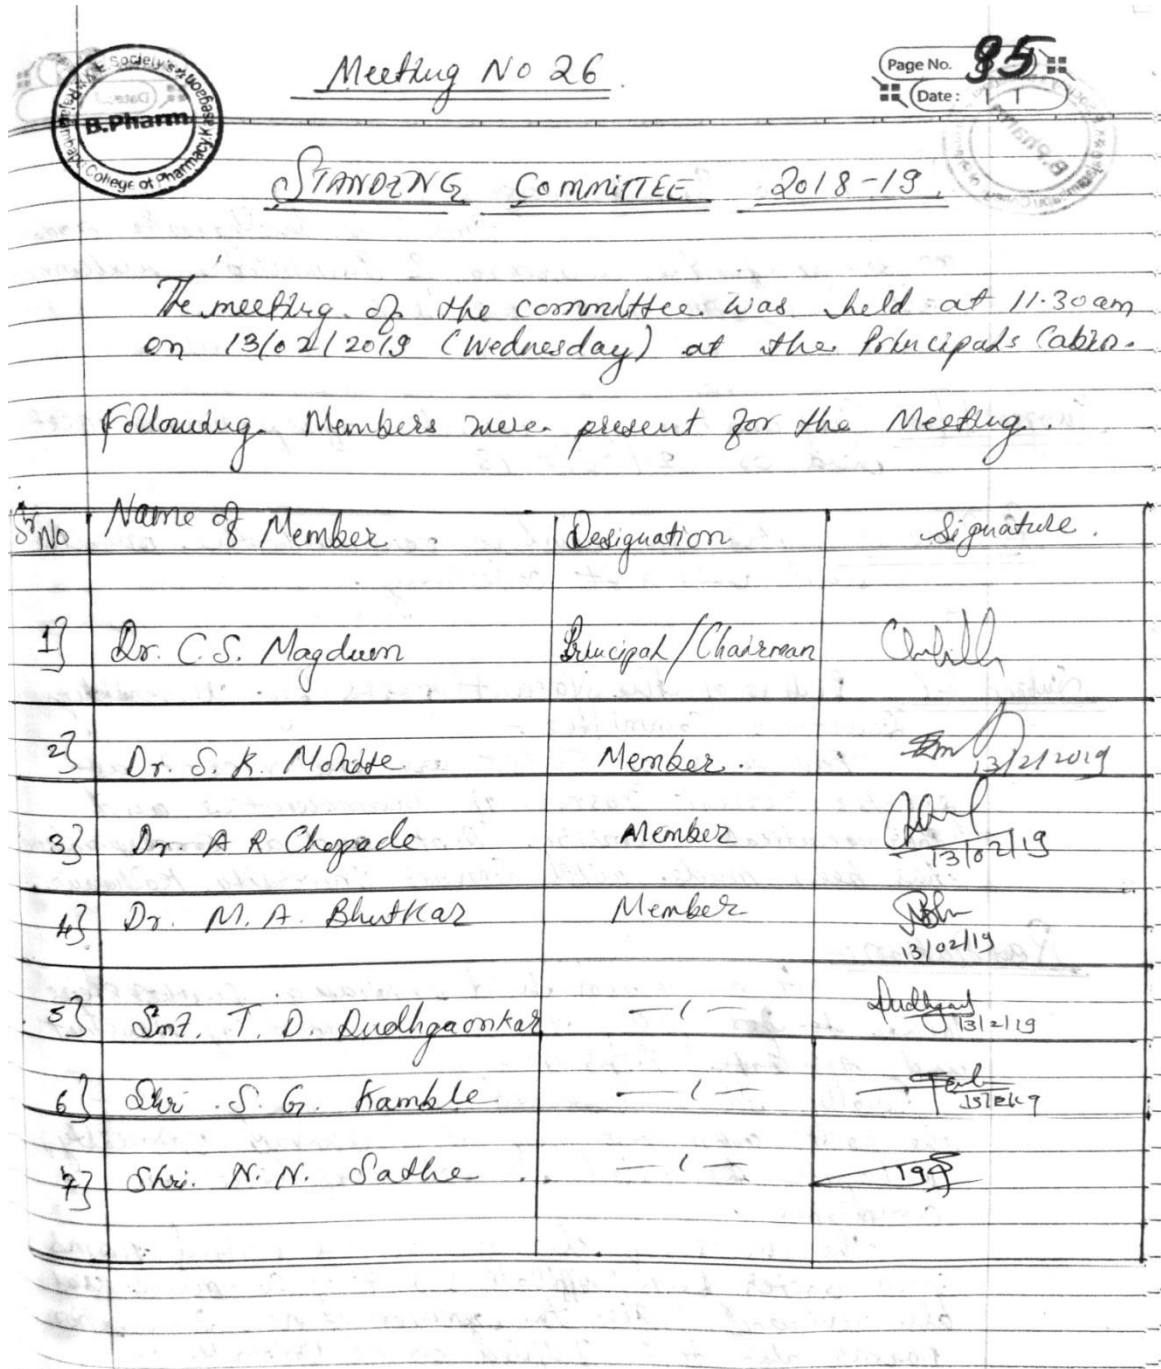 Meeting No 26.
Page No. 95
Date:
B.Pharm
College of Pharmacy, Kasegaon
STANDING COMMITTEE 2018-19.
The meeting of the committee was held at 11.30am
on 13/02/2019 (Wednesday) at the Principals Cabin.
Following Members were present for the Meeting.
Sr No Name of Member Designation Signature.
1} Dr. C.S. Magdum Principal/Chairman
2} Dr. S. K. Mohite Member. 13/2/2019
3} Dr. A R Chopade Member 13/02/19
4} Dr. M. A. Bhutkar Member 13/02/19
5} Smt. T. D. Dudhgaonkar —〃— 13/2/19
6} Shri. S. G. Kamble —〃—
7} Shri. N. N. Sathe —〃—